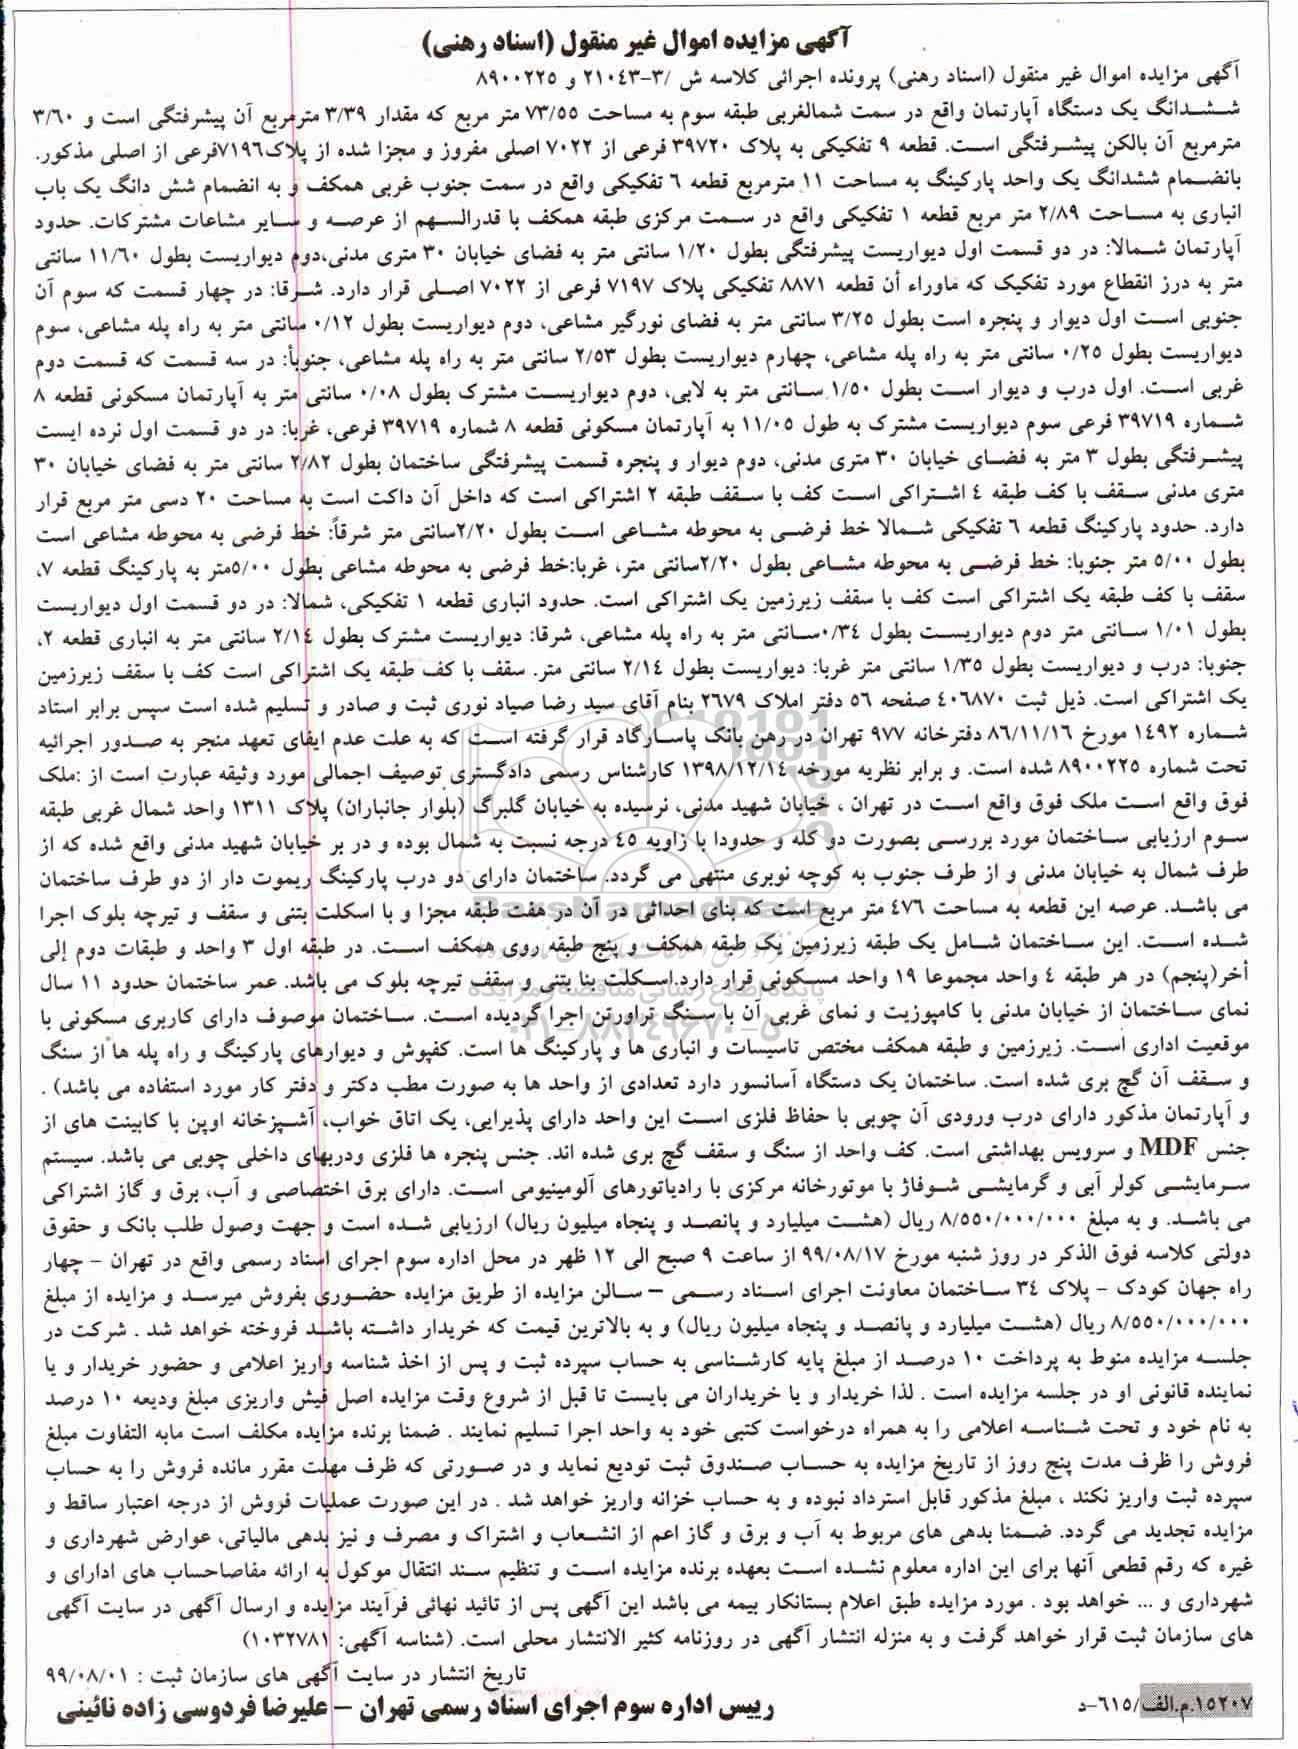 آگهی مزایده اموال غیر منقول (اسناد رهنی)
آگهی مزایده اموال غیر منقول (اسناد رهنی) پرونده اجرائی کلاسه ش /۳-۲۱۰۴۳ و ۸۹۰۰۲۲۵
ششدانگ یک دستگاه آپارتمان واقع در سمت شمالغربی طبقه سوم به مساحت ۷۳/۵۵ متر مربع که مقدار ۳/۳۹ مترمربع آن پیشرفتگی است و ۳/۶۰
مترمربع آن بالکن پیشرفتگی است. قطعه ۹ تفکیکی به پلاک ۳۹۷۲۰ فرعی از ۷۰۲۲ اصلی مفروز و مجزا شده از پلاک۷۱۹۶فرعی از اصلی مذکور.
بانضمام ششدانگ یک واحد پارکینگ به مساحت ۱۱ مترمربع قطعه ۶ تفکیکی واقع در سمت جنوب غربی همکف و به انضمام شش دانگ یک باب
انباری به مساحت ۲/۸۹ متر مربع قطعه ۱ تفکیکی واقع در سمت مرکزی طبقه همکف با قدرالسهم از عرصه و سایر مشاعات مشترکات. حدود
آپارتمان شمالا: در دو قسمت اول دیواریست پیشرفتگی بطول ۱/۲۰ سانتی متر به فضای خیابان ۳۰ متری مدنی،دوم دیواریست بطول ۱۱/۶۰ سانتی
متر به درز انقطاع مورد تفکیک که ماوراء أن قطعه ۸۸۷۱ تفکیکی پلاک ۷۱۹۷ فرعی از ۷۰۲۲ اصلی قرار دارد. شرقا: در چهار قسمت که سوم آن
جنوبی است اول دیوار و پنجره است بطول ۳/۲۵ سانتی متر به فضای نورگیر مشاعی، دوم دیواریست بطول ۰/۱۲ سانتی متر به راه پله مشاعی، سوم
دیواریست بطول ۰/۲۵ سانتی متر به راه پله مشاعی، چهارم دیواریست بطول ۲/۵۳ سانتی متر به راه پله مشاعی، جنوباً: در سه قسمت که قسمت دوم
غربی است. اول درب و دیوار است بطول ۱/۵۰ سانتی متر به لابی، دوم دیواریست مشترک بطول ۰/۰۸ سانتی متر به آپارتمان مسکونی قطعه ۸
شماره ۳۹۷۱۹ فرعی سوم دیواریست مشترک به طول ۱۱/۰۵ به آپارتمان مسکونی قطعه ۸ شماره ۳۹۷۱۹ فرعی، غربا: در دو قسمت اول نرده ایست
پیشرفتگی بطول ۳ متر به فضای خیابان ۳۰ متری مدنی، دوم دیوار و پنجره قسمت پیشرفتگی ساختمان بطول ۲/۸۲ سانتی متر به فضای خیابان ۳۰
متری مدنی سقف با کف طبقه ۴ اشتراکی است کف با سقف طبقه ۲ اشتراکی است که داخل آن داکت است به مساحت ۲۰ دسی متر مربع قرار
دارد. حدود پارکینگ قطعه ۶ تفکیکی شمالا خط فرضی به محوطه مشاعی است بطول ۲/۲۰سانتی متر شرقاً: خط فرضی به محوطه مشاعی است
بطول ۵/۰۰ متر جنوبا: خط فرضی به محوطه مشاعی بطول ۲/۲۰سانتی متر، غربا:خط فرضی به محوطه مشاعی بطول ۵/۰۰متر به پارکینگ قطعه ۷،
سقف با کف طبقه یک اشتراکی است کف با سقف زیرزمین یک اشتراکی است. حدود انباری قطعه ۱ تفکیکی، شمالا: در دو قسمت اول دیواریست
بطول ۱/۰۱ سانتی متر دوم دیواریست بطول ۰/۳۴سانتی متر به راه پله مشاعی، شرقا: دیواریست مشترک بطول ۲/۱۴ سانتی متر به انباری قطعه ۲،
جنوبا: درب و دیواریست بطول ۱/۳۵ سانتی متر غربا: دیواریست بطول ۲/۱۴ سانتی متر. سقف با کف طبقه یک اشتراکی است کف با سقف زیرزمین
یک اشتراکی است. ذیل ثبت ۴۰۶۸۷۰ صفحه ۵۶ دفتر املاک ۲۶۷۹ بنام آقای سید رضا صیاد نوری ثبت و صادر و تسلیم شده است سپس برابر استاد
شماره ۱۴۹۲ مورخ ۸۶/۱۱/۱۶ دفترخانه ۹۷۷ تهران در رهن بانک پاسارگاد قرار گرفته است که به علت عدم ایفای تعهد منجر به صدور اجرائیه
تحت شماره ۸۹۰۰۲۲۵ شده است. و برابر نظریه مورخه ۱۳۹۸/۱۲/۱۴ کارشناس رسمی دادگستری توصیف اجمالی مورد وثیقه عبارت است از :ملک
فوق واقع است ملک فوق واقع است در تهران ، خیابان شهید مدنی، نرسیده به خیابان گلبرگ (بلوار جانبازان) پلاک ۱۳۱۱ واحد شمال غربی طبقه
سوم ارزیابی ساختمان مورد بررسی بصورت دو کله و حدودا با زاویه ۴۵ درجه نسبت به شمال بوده و در بر خیابان شهید مدنی واقع شده که از
طرف شمال به خیابان مدنی و از طرف جنوب به کوچه نوبری منتهی می گردد. ساختمان دارای دو درب پارکینگ ریموت دار از دو طرف ساختمان
می باشد. عرصه این قطعه به مساحت ۴۷۶ متر مربع است که بنای احداثی در آن در هفت طبقه مجزا و با اسکلت بتنی و سقف و تیرچه بلوک اجرا
شده است. این ساختمان شامل یک طبقه زیرزمین یک طبقه همکف و پنج طبقه روی همکف است. در طبقه اول ۳ واحد و طبقات دوم إلی
أخر(پنجم) در هر طبقه ۴ واحد مجموعا ۱۹ واحد مسکونی قرار دارد.اسکلت بنا بتنی و سقف تیرچه بلوک می باشد. عمر ساختمان حدود ۱۱ سال
نمای ساختمان از خیابان مدنی با کامپوزیت و نمای غربی آن با سنگ تراورتن اجرا گردیده است. ساختمان موصوف دارای کاربری مسکونی با
موقعیت اداری است. زیرزمین و طبقه همکف مختص تاسیسات و انباری ها و پارکینگ ها است. کفپوش و دیوارهای پارکینگ و راه پله ها از سنگ
و سقف آن گچ بری شده است. ساختمان یک دستگاه آسانسور دارد تعدادی از واحد ها به صورت مطب دکتر و دفتر کار مورد استفاده می باشد) .
و آپارتمان مذکور دارای درب ورودی آن چوبی با حفاظ فلزی است این واحد دارای پذیرایی، یک اتاق خواب، آشپزخانه اوپن با کابینت های از
جنس MDF و سرویس بهداشتی است. کف واحد از سنگ و سقف گچ بری شده اند. جنس پنجره ها فلزی ودربهای داخلی چوبی می باشد. سیستم
سرمایشی کولر آبی و گرمایشی شوفاژ با موتورخانه مرکزی با رادیاتورهای آلومینیومی است. دارای برق اختصاصی و آب، برق و گاز اشتراکی
می باشد. و به مبلغ ۸/۵۵۰/۰۰۰/۰۰۰ ریال (هشت میلیارد و پانصد و پنجاه میلیون ریال) ارزیابی شده است و جهت وصول طلب بانک و حقوق
دولتی کلاسه فوق الذکر در روز شنبه مورخ ۹۹/۰۸/۱۷ از ساعت ۹ صبح الی ۱۲ ظهر در محل اداره سوم اجرای اسناد رسمی واقع در تهران - چهار
راه جهان کودک - پلاک ۳۴ ساختمان معاونت اجرای اسناد رسمی – سالن مزایده از طریق مزایده حضوری بفروش میرسد و مزایده از مبلغ
۸/۵۵۰/۰۰۰/۰۰۰ ریال (هشت میلیارد و پانصد و پنجاه میلیون ریال) و به بالاترین قیمت که خریدار داشته باشد فروخته خواهد شد . شرکت در
جلسه مزایده منوط به پرداخت ۱۰ درصد از مبلغ پایه کارشناسی به حساب سپرده ثبت و پس از اخذ شناسه واریز اعلامی و حضور خریدار و یا
نماینده قانونی او در جلسه مزایده است . لذا خریدار و یا خریداران می بایست تا قبل از شروع وقت مزایده اصل فیش واریزی مبلغ ودیعه ۱۰ درصد
به نام خود و تحت شناسه اعلامی را به همراه درخواست کتبی خود به واحد اجرا تسلیم نمایند . ضمنا برنده مزایده مکلف است مابه التفاوت مبلغ
فروش را ظرف مدت پنج روز از تاریخ مزایده به حساب صندوق ثبت تودیع نماید و در صورتی که ظرف مهلت مقرر مانده فروش را به حساب
سپرده ثبت واریز نکند ، مبلغ مذکور قابل استرداد نبوده و به حساب خزانه واریز خواهد شد . در این صورت عملیات فروش از درجه اعتبار ساقط و
مزایده تجدید می گردد. ضمنا بدهی های مربوط به آب و برق و گاز اعم از انشعاب و اشتراک و مصرف و نیز بدهی مالیاتی، عوارض شهرداری و
غیره که رقم قطعی آنها برای این اداره معلوم نشده است بعهده برنده مزایده است و تنظیم سند انتقال موکول به ارائه مفاصاحساب های ادارای و
شهرداری و ... خواهد بود . مورد مزایده طبق اعلام بستانکار بیمه می باشد این آگهی پس از تائید نهائی فرآیند مزایده و ارسال آگهی در سایت آگهی
های سازمان ثبت قرار خواهد گرفت و به منزله انتشار آگهی در روزنامه کثیر الانتشار محلی است. (شناسه آگهی: ۱۰۳۲۷۸۱)
تاریخ انتشار در سایت آگهی های سازمان ثبت : ۹۹/۰۸/۰۱
رییس اداره سوم اجرای اسناد رسمی تهران – علیرضا فردوسی زاده نائینی
۱۵۲۰۷.م.الف/۶۱۵-د
ParsNamadData
پایگاه اطلاع رسانی مناقصه و مزایده
۰۲۱-۸۸۳۴۹۶۷۰-۵